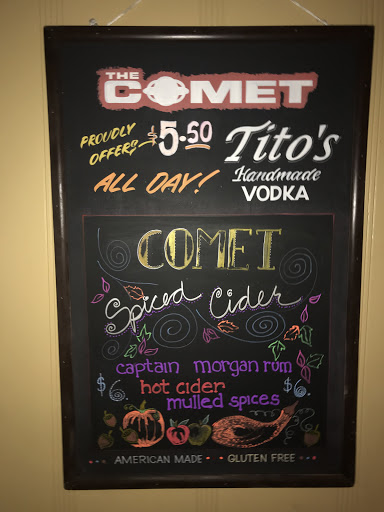 THE
COMET
PROUDLY OFFERS $5.50 Tito's
ALL DAY! Handmade
VODKA
COMET
Spiced Cider
captain morgan rum
$6. hot cider $6.
mulled spices
AMERICAN MADE - - GLUTEN FREE